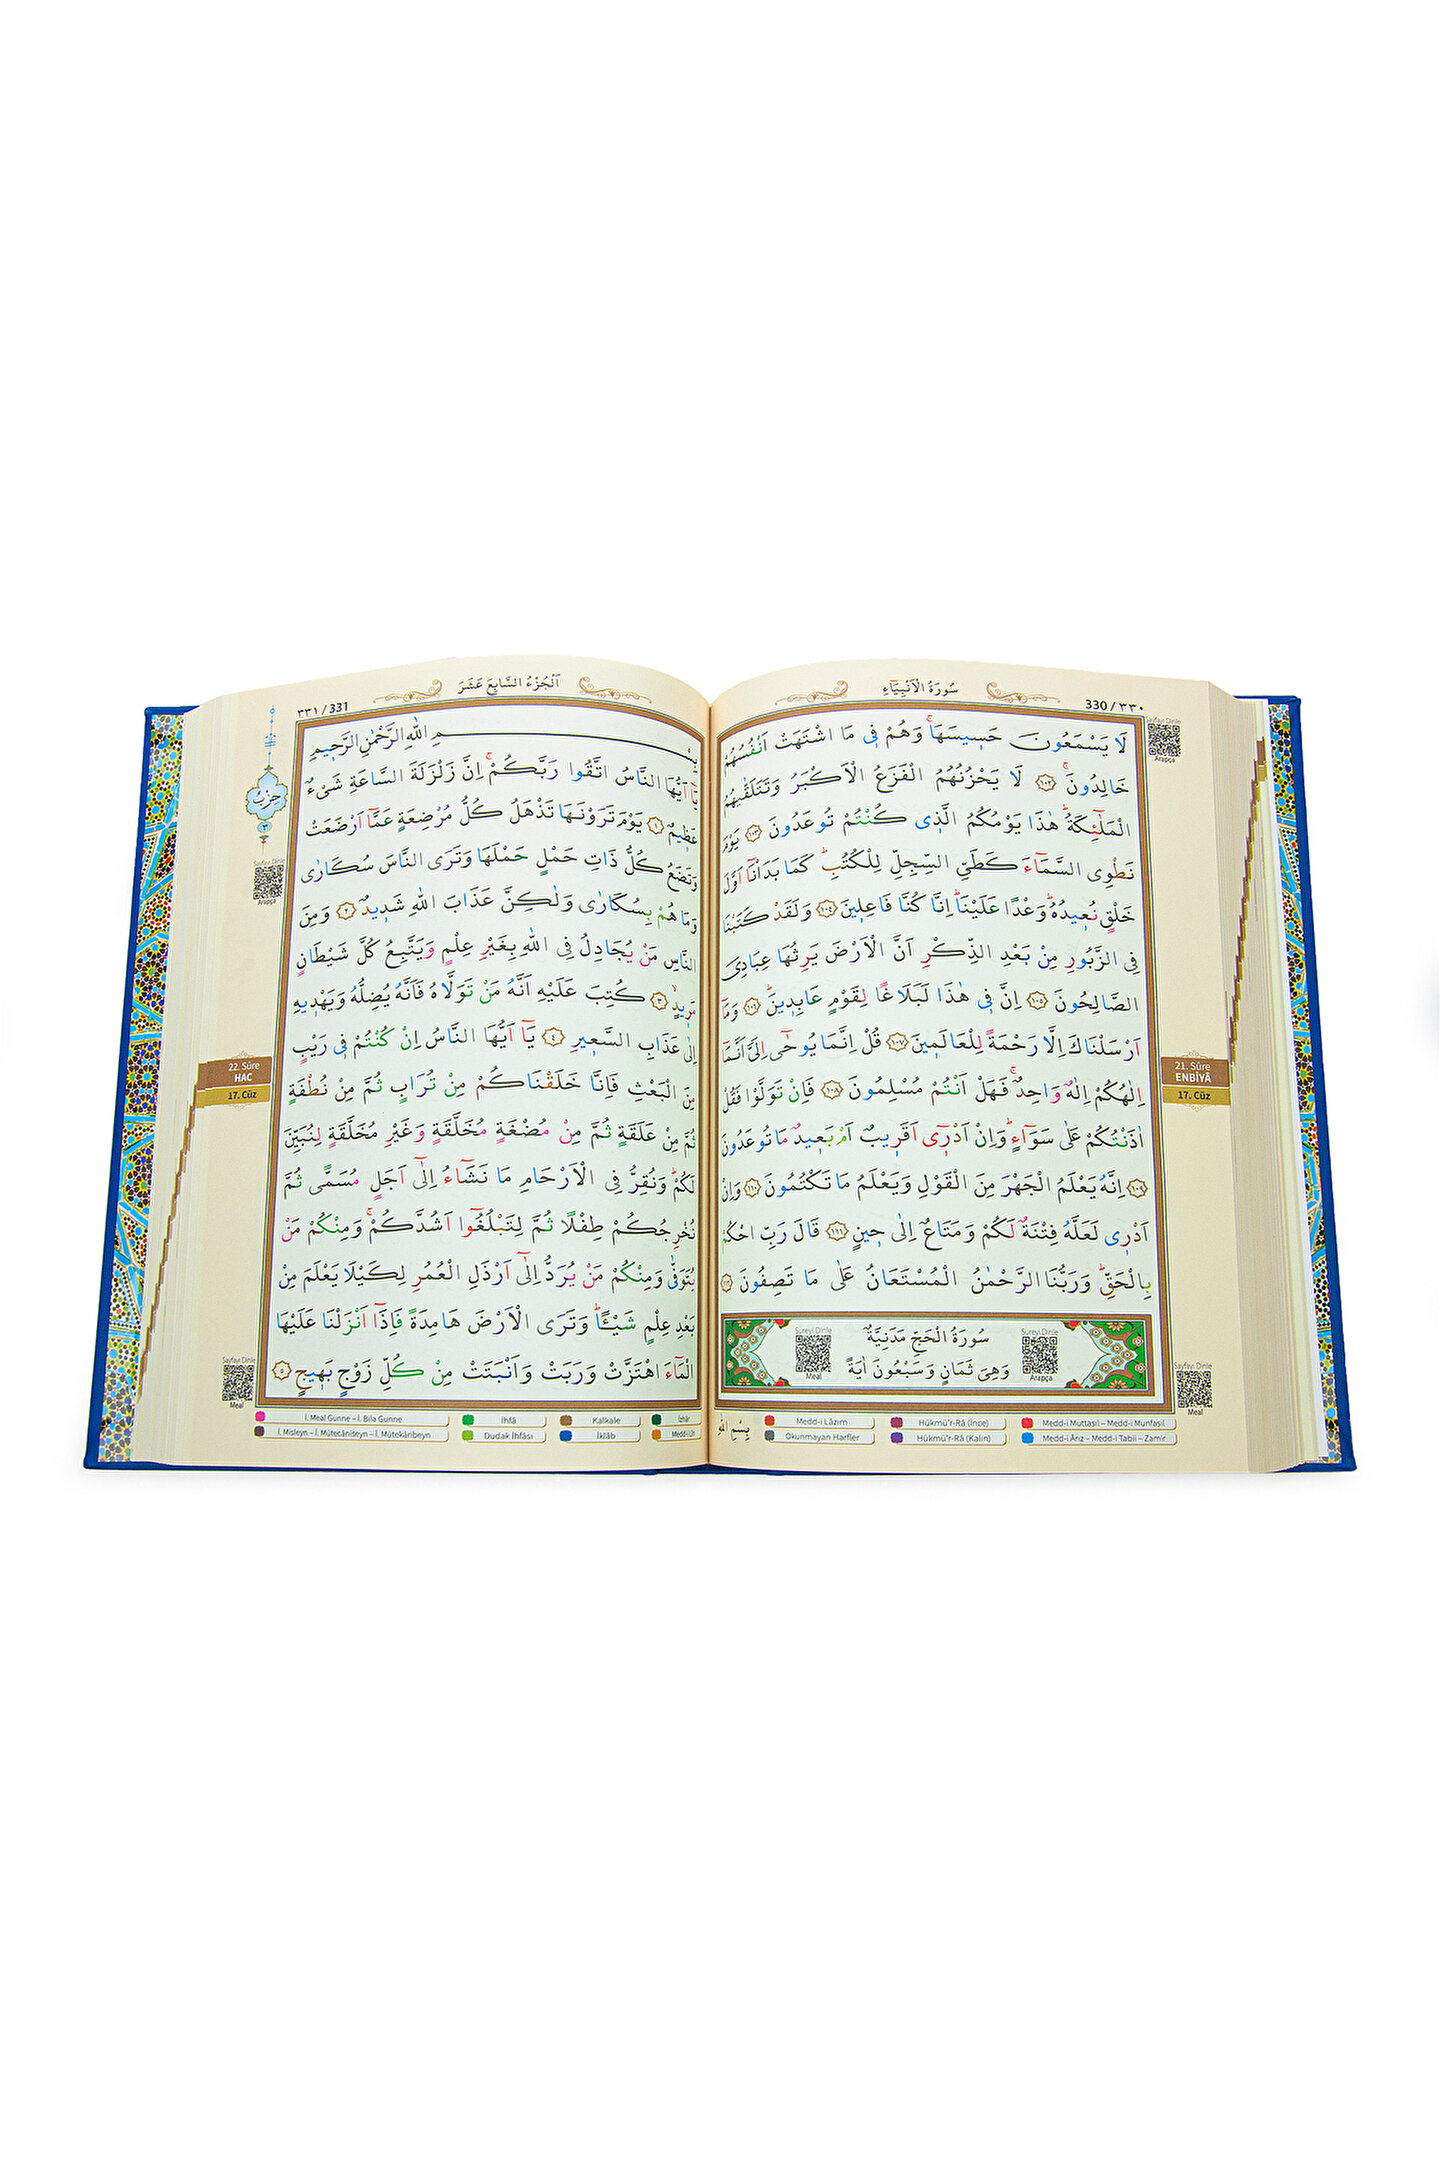 سُورَةُ الْاَنْبِيَاءِ
330 / ٣٣٠
لَا يَسْمَعُونَ حَسٖيسَهَاۚ وَهُمْ فٖى مَا اشْتَهَتْ اَنْفُسُهُمْ
خَالِدُونَۚ ﴿١٠٢﴾ لَا يَحْزُنُهُمُ الْفَزَعُ الْاَكْبَرُ وَتَتَلَقّٰيهُمُ
الْمَلٰٓئِكَةُؕ هٰذَا يَوْمُكُمُ الَّذٖى كُنْتُمْ تُوعَدُونَ ﴿١٠٣﴾ يَوْمَ
نَطْوِى السَّمَٓاءَ كَطَىِّ السِّجِلِّ لِلْكُتُبِؕ كَمَا بَدَاْنَٓا اَوَّلَ
خَلْقٍ نُعٖيدُهُؕ وَعْدًا عَلَيْنَاؕ اِنَّا كُنَّا فَاعِلٖينَ ﴿١٠٤﴾ وَلَقَدْ كَتَبْنَا
فِى الزَّبُورِ مِنْ بَعْدِ الذِّكْرِ اَنَّ الْاَرْضَ يَرِثُهَا عِبَادِىَ
الصَّالِحُونَ ﴿١٠٥﴾ اِنَّ فٖى هٰذَا لَبَلَاغًا لِقَوْمٍ عَابِدٖينَؕ ﴿١٠٦﴾ وَمَٓا
اَرْسَلْنَاكَ اِلَّا رَحْمَةً لِلْعَالَمٖينَ ﴿١٠٧﴾ قُلْ اِنَّمَا يُوحٰٓى اِلَىَّ اَنَّمَٓا
اِلٰهُكُمْ اِلٰهٌ وَاحِدٌۚ فَهَلْ اَنْتُمْ مُسْلِمُونَ ﴿١٠٨﴾ فَاِنْ تَوَلَّوْا فَقُلْ
اٰذَنْتُكُمْ عَلٰى سَوَٓاءٍؕ وَاِنْ اَدْرٖٓى اَقَرٖيبٌ اَمْ بَعٖيدٌ مَا تُوعَدُونَ
﴿١٠٩﴾ اِنَّهُ يَعْلَمُ الْجَهْرَ مِنَ الْقَوْلِ وَيَعْلَمُ مَا تَكْتُمُونَ ﴿١١٠﴾ وَاِنْ
اَدْرٖى لَعَلَّهُ فِتْنَةٌ لَكُمْ وَمَتَاعٌ اِلٰى حٖينٍ ﴿١١١﴾ قَالَ رَبِّ احْكُمْ
بِالْحَقِّؕ وَرَبُّنَا الرَّحْمٰنُ الْمُسْتَعَانُ عَلٰى مَا تَصِفُونَ ﴿١١٢﴾
سُورَةُ الْحَجِّ مَدَنِيَّةٌ
وَهِىَ ثَمَانٍ وَسَبْعُونَ اٰيَةً
Sureyi Dinle
Meal
Sureyi Dinle
Arapça
Sayfayı Dinle
Arapça
21. Sûre
ENBİYÂ
17. Cüz
Sayfayı Dinle
Meal
بِسْمِ اللهِ
Medd-i Lâzım
Hükmü'r-Râ (İnce)
Medd-i Muttasıl – Medd-i Munfasıl
Okunmayan Harfler
Hükmü'r-Râ (Kalın)
Medd-i Ârız – Medd-i Tabii – Zamir
اَلْجُزْءُ السَّابِعَ عَشَرَ
٣٣١ / 331
بِسْمِ اللهِ الرَّحْمٰنِ الرَّحٖيمِ
يَٓا اَيُّهَا النَّاسُ اتَّقُوا رَبَّكُمْۚ اِنَّ زَلْزَلَةَ السَّاعَةِ شَىْءٌ
عَظٖيمٌ ﴿١﴾ يَوْمَ تَرَوْنَهَا تَذْهَلُ كُلُّ مُرْضِعَةٍ عَمَّٓا اَرْضَعَتْ
وَتَضَعُ كُلُّ ذَاتِ حَمْلٍ حَمْلَهَا وَتَرَى النَّاسَ سُكَارٰى
وَمَا هُمْ بِسُكَارٰى وَلٰكِنَّ عَذَابَ اللهِ شَدٖيدٌ ﴿٢﴾ وَمِنَ
النَّاسِ مَنْ يُجَادِلُ فِى اللهِ بِغَيْرِ عِلْمٍ وَيَتَّبِعُ كُلَّ شَيْطَانٍ
مَرٖيدٍۙ ﴿٣﴾ كُتِبَ عَلَيْهِ اَنَّهُ مَنْ تَوَلَّاهُ فَاَنَّهُ يُضِلُّهُ وَيَهْدٖيهِ
اِلٰى عَذَابِ السَّعٖيرِ ﴿٤﴾ يَٓا اَيُّهَا النَّاسُ اِنْ كُنْتُمْ فٖى رَيْبٍ
مِنَ الْبَعْثِ فَاِنَّا خَلَقْنَاكُمْ مِنْ تُرَابٍ ثُمَّ مِنْ نُطْفَةٍ
ثُمَّ مِنْ عَلَقَةٍ ثُمَّ مِنْ مُضْغَةٍ مُخَلَّقَةٍ وَغَيْرِ مُخَلَّقَةٍ لِنُبَيِّنَ
لَكُمْؕ وَنُقِرُّ فِى الْاَرْحَامِ مَا نَشَٓاءُ اِلٰٓى اَجَلٍ مُسَمًّى ثُمَّ
نُخْرِجُكُمْ طِفْلًا ثُمَّ لِتَبْلُغُٓوا اَشُدَّكُمْۚ وَمِنْكُمْ مَنْ
يُتَوَفّٰى وَمِنْكُمْ مَنْ يُرَدُّ اِلٰٓى اَرْذَلِ الْعُمُرِ لِكَيْلَا يَعْلَمَ مِنْ
بَعْدِ عِلْمٍ شَيْـًٔاؕ وَتَرَى الْاَرْضَ هَامِدَةً فَاِذَٓا اَنْزَلْنَا عَلَيْهَا
الْمَٓاءَ اهْتَزَّتْ وَرَبَتْ وَاَنْبَتَتْ مِنْ كُلِّ زَوْجٍ بَهٖيجٍ ﴿٥﴾
حزب
٣
Sayfayı Dinle
Arapça
22. Sûre
HAC
17. Cüz
Sayfayı Dinle
Meal
İ. Meal Gunne – İ. Bila Gunne
İhfâ
Kalkale
İzhâr
İ. Misleyn – İ. Mütecâniseyn – İ. Mütekâribeyn
Dudak İhfâsı
İklâb
Medd-i Lîn